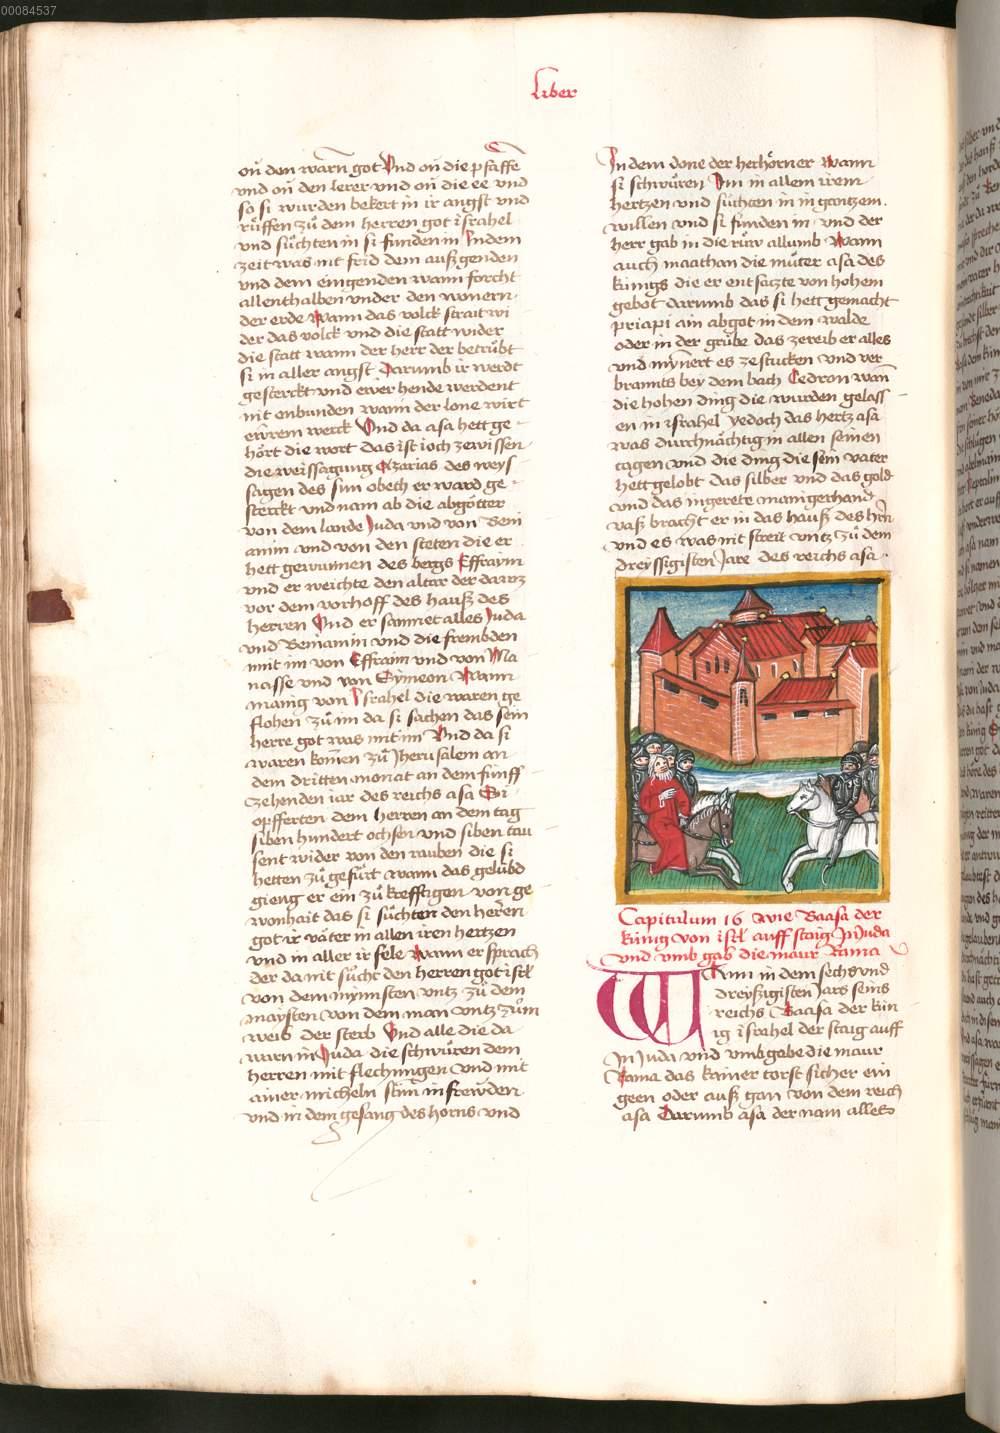 00084537
Liber
on den warn got Vnd on die pfaffe
vnd on den lerer vnd on die ee vnd
so si wurden bekert in ir angst vnd
rüffen zů dem herren got israhel
vnd sůchten in si funden in Indem
zeit was nit frid dem außgenden
vnd dem eingenden wann forcht
allenthalben vnder den wonern
der erde Wann das volck strait wi
der das volck vnd die statt wider
die statt wann der herr der betrübt
si in aller angst Darumb ir werdt
gesterckt vnd ewer hende werdent
nit enbunden wann der lone wirt
ewrem werck Vnd da asa hett ge
hört die wort das ist ioch zewissen
die weissagung Azarias des weys
sagen des sun obeth er ward ge
sterckt vnd nam ab die abgötter
von dem lande Juda vnd von Beni
amin vnd von den steten die er
hett gewunnen des bergs Effraym
vnd er weichte den altar der da was
vor dem vorhoff des hauß des
herren Vnd er samnet alles Juda
vnd Beniamin vnd die frembden
mit im von Effraim vnd von Ma
nasse vnd von Symeon Wann
manig von Israhel die waren ge
flohen zů im da si sachen das sein
herre got was mit im Vnd da si
waren komen zů Jherusalem an
dem dritten monat an dem fünff
zehenden iar des reichs asa Si
opfferten dem herren an dem tag
siben hundert ochsen vnd siben tau
sent wider von den rauben die si
hetten zů gefürt wann das gelübd
gieng er ein zů krefftigen von ge
wonhait das si sůchten den herren
got ir väter in allen iren hertzen
vnd in aller ir sele Wann er sprach
der da nit sůcht den herren got isrl
von dem mynnsten vntz zů dem
maysten von dem man vntz zům
weib der sterb Vnd alle die da
warn in Juda die schwůren dem
herren mit flechungen vnd mit
ainer micheln stim in frewden
vnd in dem gesang des horns vnd
In dem done der herhörner Wann
si schwůren Im in allem irem
hertzen vnd sůchten in in gantzem
willen vnd si funden in vnd der
herr gab in die růw allumb Wann
auch maathan die můter asa des
künigs die er entsatzte von hohem
gebot darumb das si hett gemacht
priapi ain abgot in dem walde
oder in der grůbe das zereib er alles
vnd mynert es ze stucken vnd ver
brannts bey dem bach Cedron wan
die hohen ding die wurden gelass
en in israhel yedoch das hertz asa
was durchnächtig in allen seinen
tagen vnd die ding die sein vater
hett gelobt das silber vnd das gold
vnd das ingerete manigerhand
vaß bracht er in das hauß des hrn
vnd es was nit streit vntz zů dem
dreyssigisten Jare des reichs asa
Capitulum 16 Wie Baasa der
künig von isrl auff staig In Juda
vnd vmb gab die maur Rama
Wann in dem sechs vnd
dreyßigisten Jars seins
reichs Baasa der kün
ig israhel der staig auff
In Juda vnd vmbgabe die maur
Rama das kainer torst sicher ein
geen oder auß gan von dem reich
asa Darumb asa der nam alles